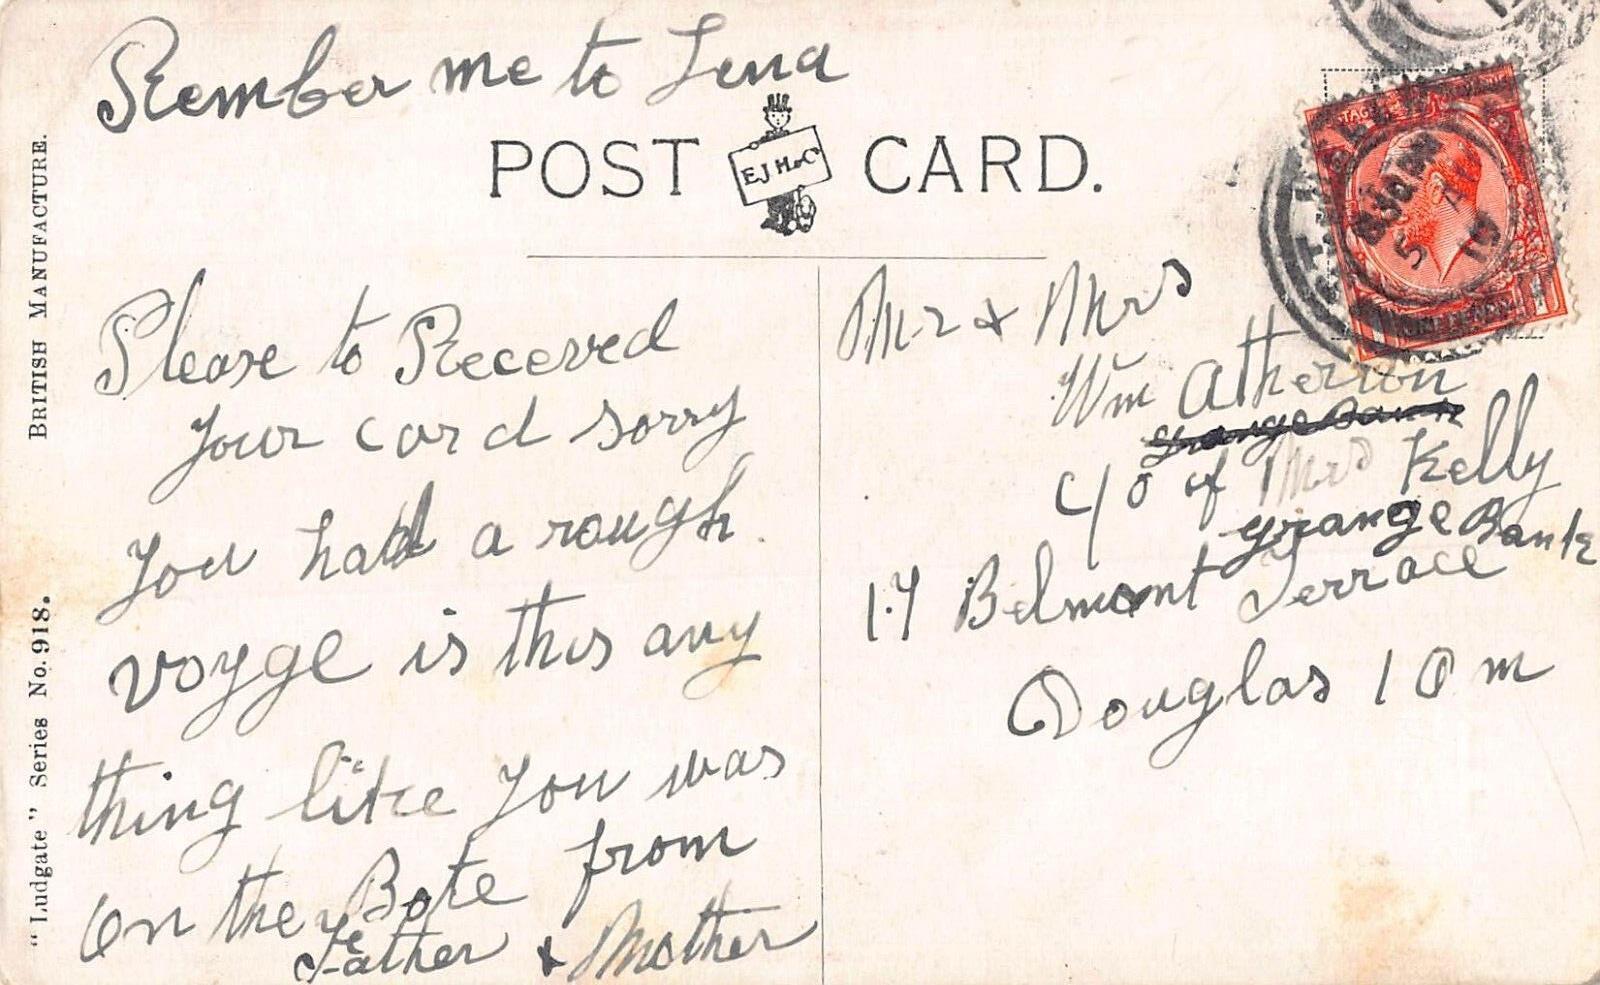 Rember me to Lena
POST CARD.
E J H & Co
BRITISH MANUFACTURE.
"Ludgate" Series No. 918.
Please to Receved
Your card sorry
You had a rough
voyge is this any
thing like You was
on the Bote from
Father & Mother
Mr & Mrs
Wm Atherton
Grange Bank
C/o of Mrs Kelly
Grange Bank
17 Belmont Terrace
Douglas I O M